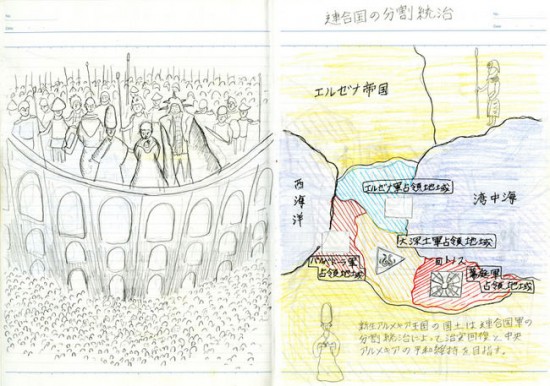 連合国の分割統治
エルゼナ帝国
西海洋
港中海
エルゼナ軍占領地域
大深土軍占領地域
占領地域
ヨトナス
幕庭軍
占領地域
新生アルメキア王国の国土は連合国軍の
分割統治によって治安回復と中央
アルメキアの平和維持を目指す。